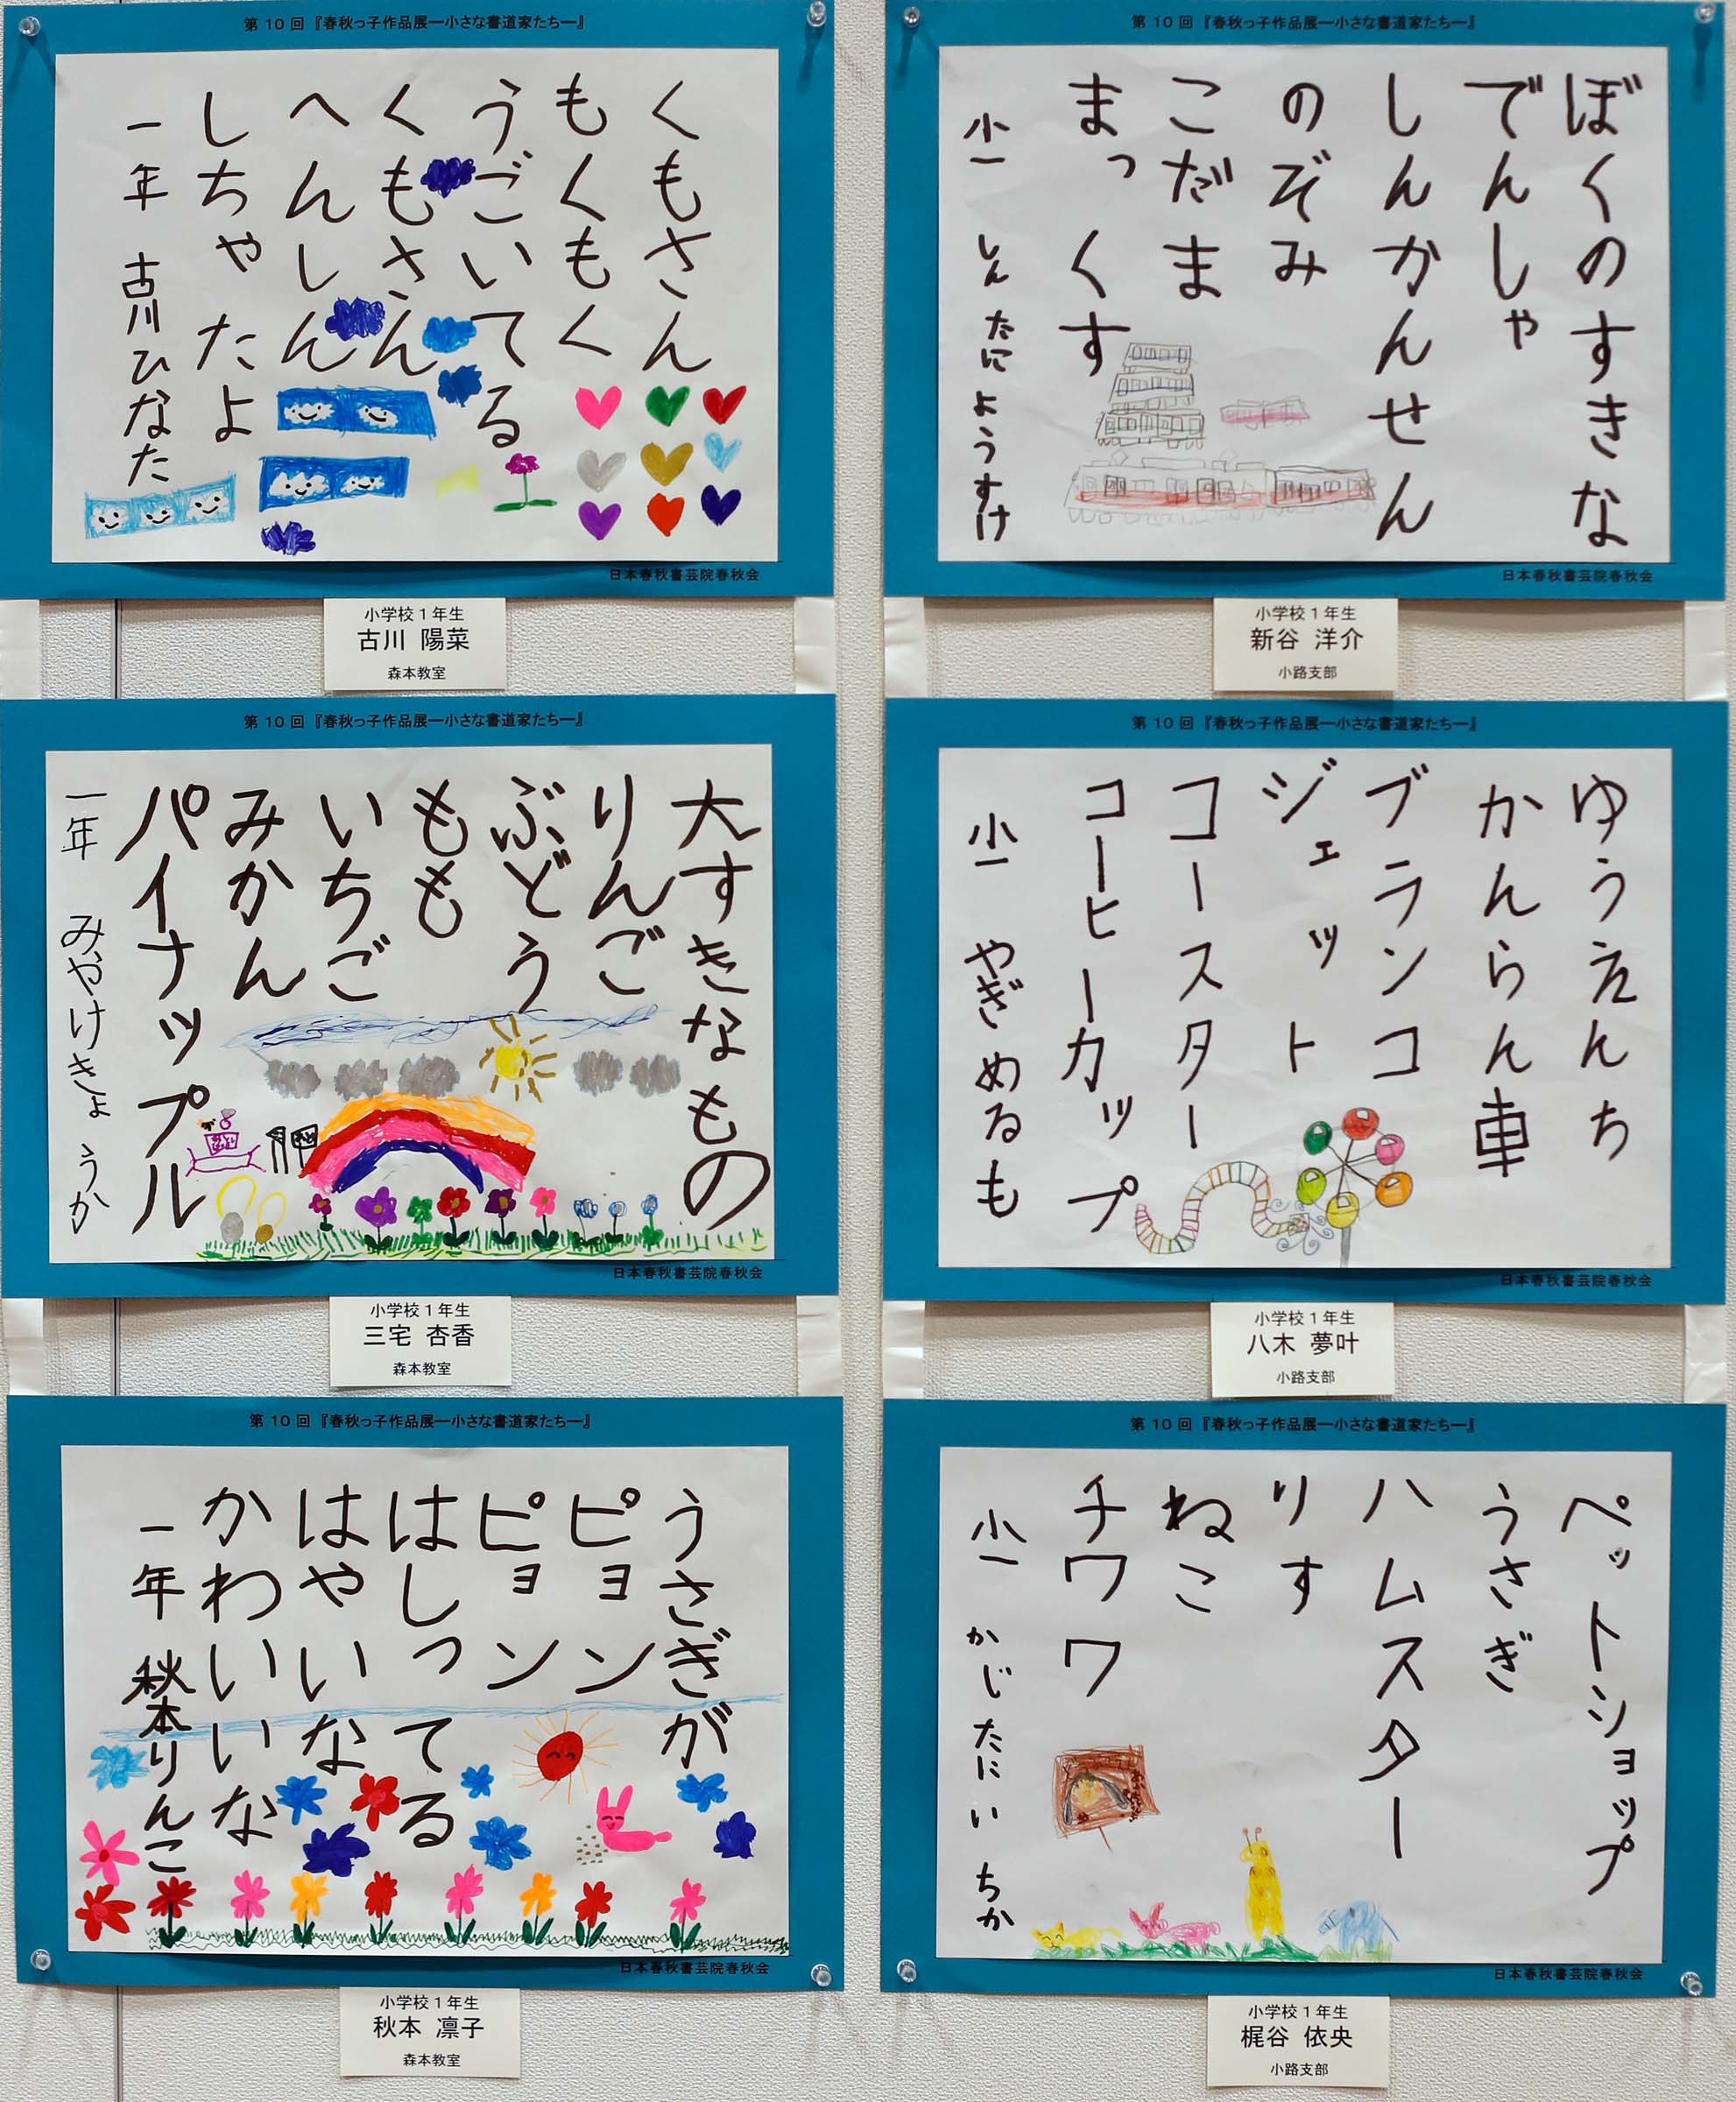 第10回『春秋っ子作品展―小さな書道家たち―』
くもさん
もくもく
うごいてる
くもさん
へんしん
しちゃたよ
一年 古川ひなた
日本春秋書芸院春秋会
小学校1年生
古川 陽菜
森本教室
第10回『春秋っ子作品展―小さな書道家たち―』
ぼくのすきな
でんしゃ
しんかんせん
のぞみ
こだま
まっくす
小一 しんたにようすけ
日本春秋書芸院春秋会
小学校1年生
新谷 洋介
小路支部
第10回『春秋っ子作品展―小さな書道家たち―』
大すきなもの
りんご
ぶどう
もも
いちご
みかん
パイナップル
一年 みやけきょうか
日本春秋書芸院春秋会
小学校1年生
三宅 杏香
森本教室
第10回『春秋っ子作品展―小さな書道家たち―』
ゆうえんち
かんらん車
ブランコ
ジェット
コースター
コーヒーカップ
小一 やぎめるも
日本春秋書芸院春秋会
小学校1年生
八木 夢叶
小路支部
第10回『春秋っ子作品展―小さな書道家たち―』
うさぎが
ピョン
ピョン
はしってる
はやいな
かわいいな
一年 秋本りんこ
日本春秋書芸院春秋会
小学校1年生
秋本 凛子
森本教室
第10回『春秋っ子作品展―小さな書道家たち―』
ペットショップ
うさぎ
ハムスター
りす
ねこ
チワワ
小一 かじたにい ちか
日本春秋書芸院春秋会
小学校1年生
梶谷 依央
小路支部